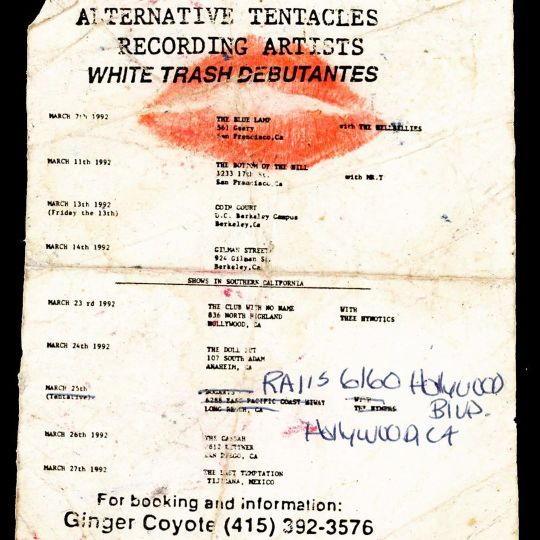 ALTERNATIVE TENTACLES
RECORDING ARTISTS
WHITE TRASH DEBUTANTES
MARCH 7th 1992
THE BLUE LAMP
561 Geary
San Francisco,Ca
with THE HELLBILLIES
MARCH 11th 1992
THE BOTTOM OF THE HILL
1233 17th St.
San Francisco,Ca
with MR.T
MARCH 13th 1992
(Friday the 13th)
COURT
U.C. Berkeley Campus
Berkeley,Ca
MARCH 14th 1992
GILMAN STREET
924 Gilman St.
Berkeley,Ca
SHOWS IN SOUTHERN CALIFORNIA
MARCH 23 rd 1992
THE CLUB WITH NO NAME
836 NORTH HIGHLAND
HOLLYWOOD, CA
WITH
THEE HYNOTICS
MARCH 24th 1992
THE DOLL HUT
107 SOUTH ADAM
ANAHEIM, CA
MARCH 25th
(Tentative)
BOGARTS
6288 EAST PACIFIC COAST HIWAY
LONG BEACH, CA
WITH
THE NYMPHS
RAJIS 6160 HOllYWOOD
BLVD.
HOllYWOOD, CA
MARCH 26th 1992
THE CASBAH
2812 KETTNER
SAN DIEGO, CA
MARCH 27th 1992
THE LAST TEMPTATION
TIJUANA, MEXICO
For booking and information:
Ginger Coyote (415) 392-3576